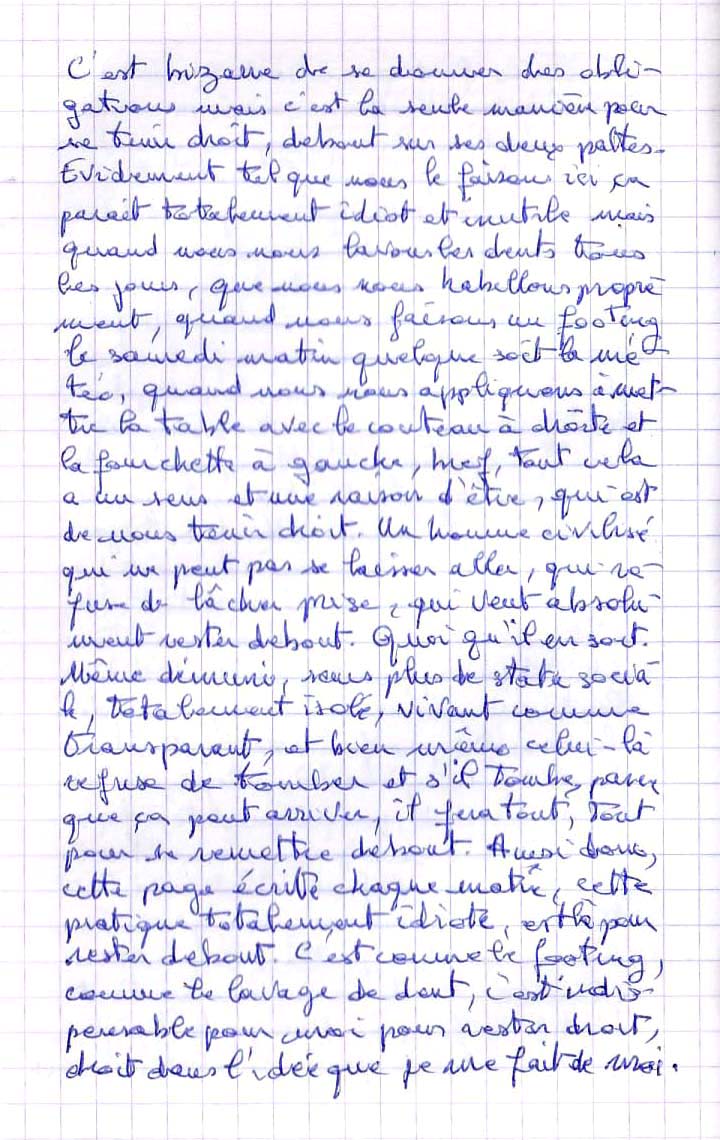 C'est bizarre de se donner des obli-
gations mais c'est la seule manière pour
se tenir droit, debout sur ses deux pattes.
Evidement tel que nous le faisons ici ça
parait totalement idiot et inutile mais
quand nous nous lavons les dents tous
les jours, que nous nous habillons propre
ment, quand nous faisons un footing
le samedi matin quelque soit la mé-
téo, quand nous nous appliquons à met-
tre la table avec le couteau à droite et
la fourchette à gauche, bref, tout cela
a un sens et une raison d'être, qui est
de nous tenir droit. Un homme civilisé
qui ne peut pas se laisser aller, qui re-
fuse de lâcher prise, qui veut absolu-
ment rester debout. Quoi qu'il en soit.
Même démuni, sans plus de statu socia
le, totalement isolé, vivant comme
transparant, et bien même celui-là
refuse de tomber et s'il tombe, parce
que ça peut arriver, il fera tout, tout
pour se remettre debout. Aussi donc,
cette page écrite chaque matin, cette
pratique totalement idiote, est là pour
rester debout. C'est comme le footing,
comme le lavage de dent, c'est indis-
pensable pour moi pour rester droit,
droit dans l'idée que je me fait de moi.